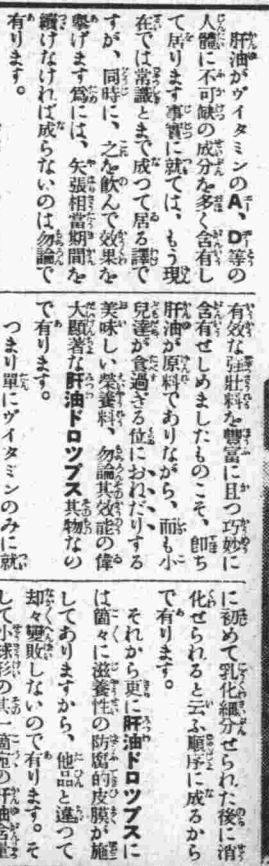 肝油がヴイタミンのA、D等の
人體に不可缺の成分を多く含有し
て居ります事實に就ては、もう現
在では常識とまで成つて居る譯で
すが、同時に、之を飮んで效果を
擧げます爲には、矢張相當期間を
續けなければ成らないのは勿論で
有ります。
有效な强壯料を豐富に且つ巧妙に
含有せしめましたものこそ、卽ち
肝油が原料でありながら、而も小
兒達が食過ぎる位におねだりする
美味しい榮養料、勿論其效能の偉
大顯著な肝油ドロツプス其物なの
で有ります。
つまり單にヴイタミンのみに就
に初めて乳化細分せられた後に消
化せられると云ふ順序に成るから
で有ります。
それから更に肝油ドロツプスに
は箇々に滋養性の防腐的皮膜が施
してありますから、他品と違つて
却々變敗しないので有ります。そ
して小球形の其一箇宛の肝油含量